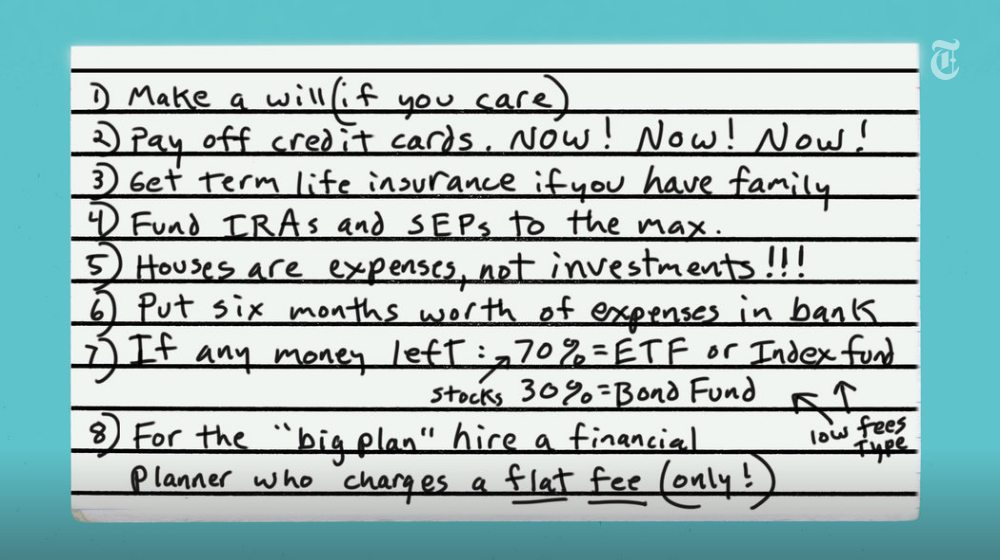 T
1) Make a will (if you care)
2) Pay off credit cards. NOW! NOW! NOW!
3) Get term life insurance if you have family
4) Fund IRAs and SEPs to the max.
5) Houses are expenses, not investments!!!
6) Put six months worth of expenses in bank
7) If any money left: → 70% = ETF or Index fund
stocks 30% = Bond Fund
low fees
type
8) For the "big plan" hire a financial
planner who charges a flat fee (only!)